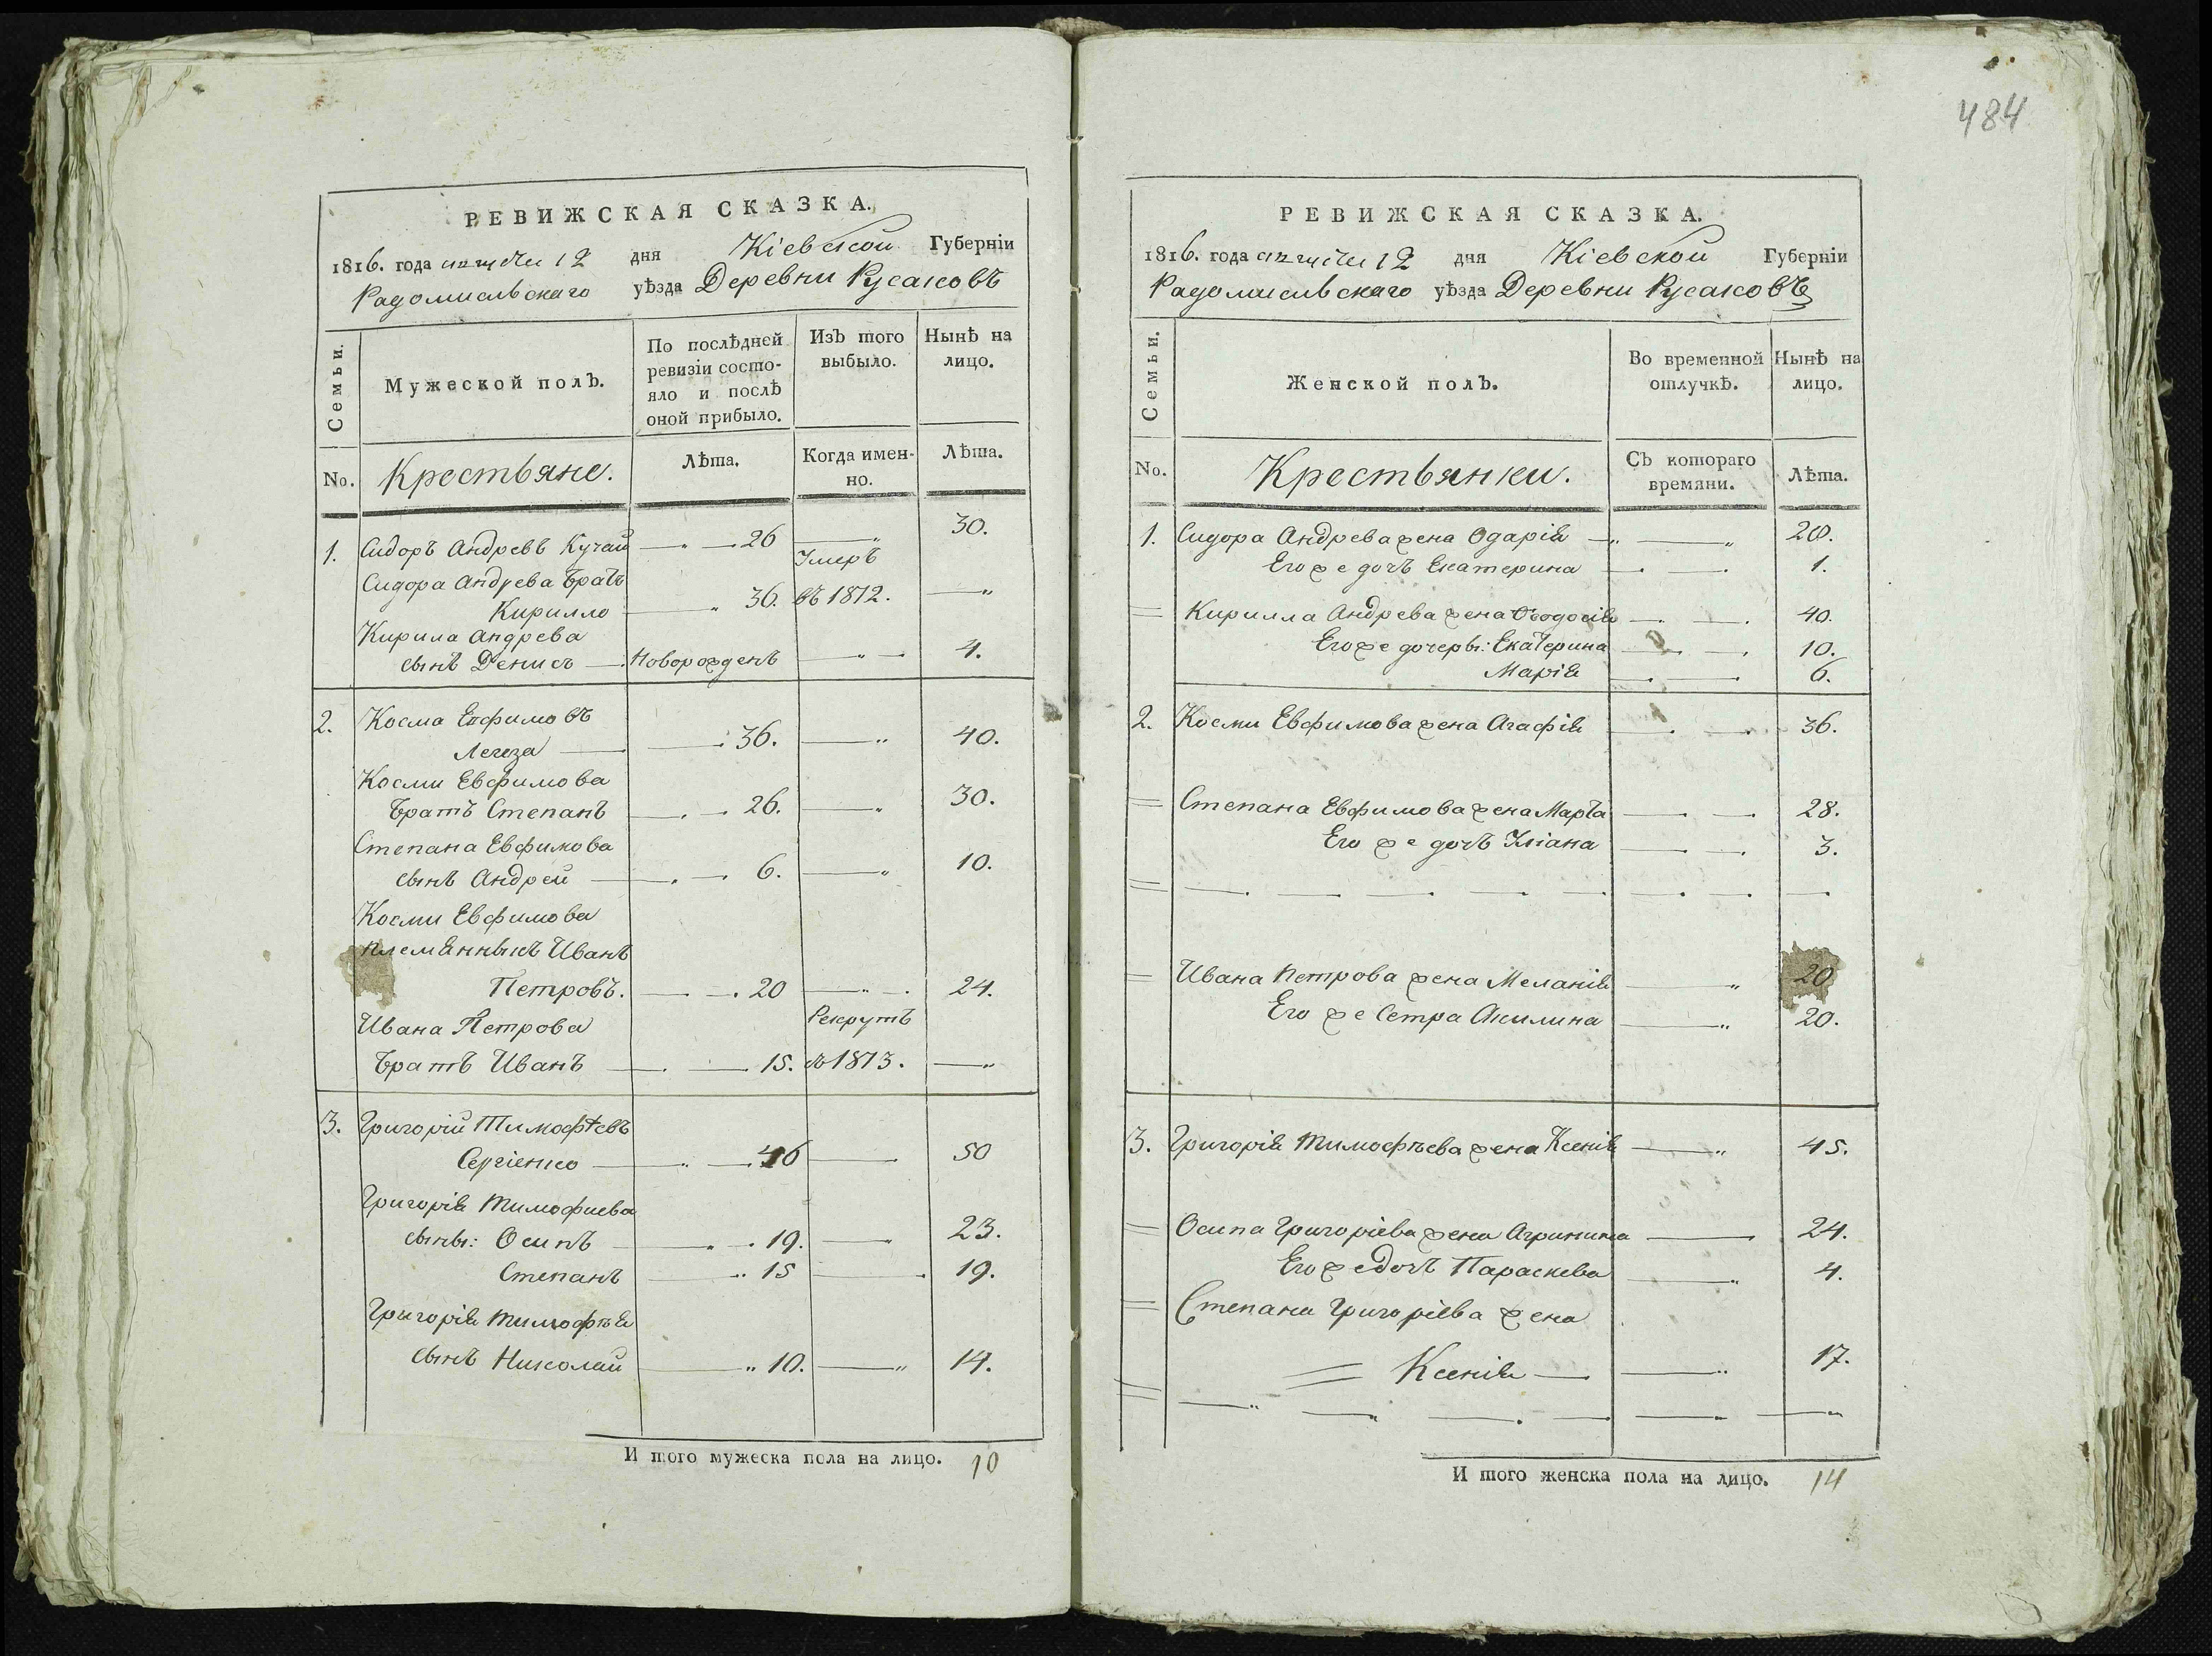 484
РЕВИЖСКАЯ СКАЗКА.
1816. года 12 дня Кіевской Губерніи
Радомисльскаго уѣзда Деревни Русаковъ
Семьи.
Мужеской полъ.
По послѣдней ревизіи состояло и послѣ оной прибыло.
Изъ того выбыло.
Нынѣ на лицо.
No. Крестьяне. Лѣта. Когда именно. Лѣта.
1. Сидоръ Андревъ Кучай — 26 — 30.
Сидора Андрева братъ Умеръ
Кирилло — 36. въ 1812. —
Кирила Андрева
сынъ Денисъ — Новорожденъ — 4.
2. Косма Евфимовъ
Легеза — 36. — 40.
Косми Евфимова
братъ Степанъ — 26. — 30.
Степана Евфимова
сынъ Андрей — 6. — 10.
Косми Евфимова
племянныкъ Иванъ
Петровъ. — 20 — 24.
Ивана Петрова Рекрутъ
братъ Иванъ — 15. въ 1813. —
3. Григорій Тимофѣевъ
Сергіенко — 46 — 50
Григорія Тимофиева
сыны: Осипъ — 19. — 23.
Степанъ — 15 — 19.
Григорія Тимофѣя
сынъ Николай — 10. — 14.
И того мужеска пола на лицо. 10
РЕВИЖСКАЯ СКАЗКА.
1816. года 12 дня Кіевской Губерніи
Радомисльскаго уѣзда Деревни Русаковъ
Семьи.
Женской полъ.
Во временной отлучкѣ.
Нынѣ на лицо.
No. Крестьянки. Съ котораго времяни. Лѣта.
1. Сидора Андрева жена Одарія — 20.
Его же дочъ Екатерина — 1.
= Кирилла Андрева жена Ѳеодосія — 40.
Его же дочеры: Екатерина — 10.
Марія — 6.
2. Косми Евфимова жена Агафія — 36.
= Степана Евфимова жена Марта — 28.
Его же дочъ Уліана — 3.
= — — — —
= Ивана Петрова жена Меланія — 20
Его же Сетра Акилина — 20.
3. Григорія Тимофѣева жена Ксенія — 45.
= Осипа Григоріева жена — 24.
Его же дочъ Параскева — 4.
= Степана Григоріева жена
= Ксенія — 17.
= — — — —
И того женска пола на лицо. 14